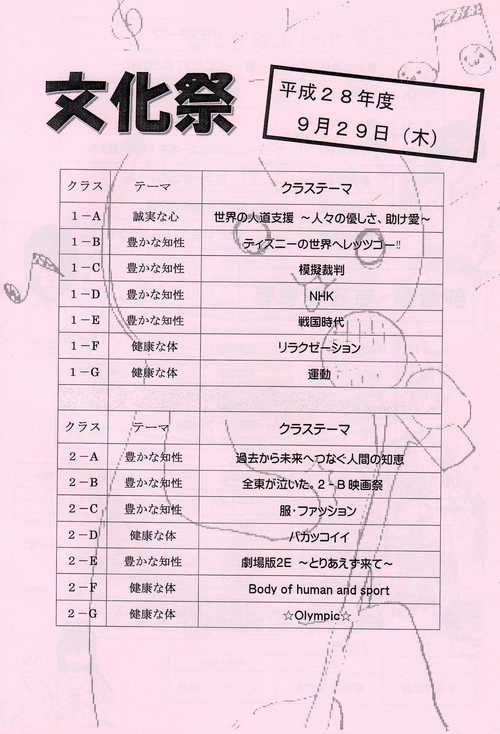 文化祭
平成28年度
9月29日（木）
クラス テーマ クラステーマ
1－A 誠実な心 世界の人道支援 ～人々の優しさ、助け愛～
1－B 豊かな知性 ディズニーの世界へレッツゴー!!
1－C 豊かな知性 模擬裁判
1－D 豊かな知性 NHK
1－E 豊かな知性 戦国時代
1－F 健康な体 リラクゼーション
1－G 健康な体 運動
クラス テーマ クラステーマ
2－A 豊かな知性 過去から未来へつなぐ人間の知恵
2－B 豊かな知性 全東が泣いた。2－B映画祭
2－C 豊かな知性 服・ファッション
2－D 健康な体 バカッコイイ
2－E 豊かな知性 劇場版2E ～とりあえず来て～
2－F 健康な体 Body of human and sport
2－G 健康な体 ☆Olympic☆